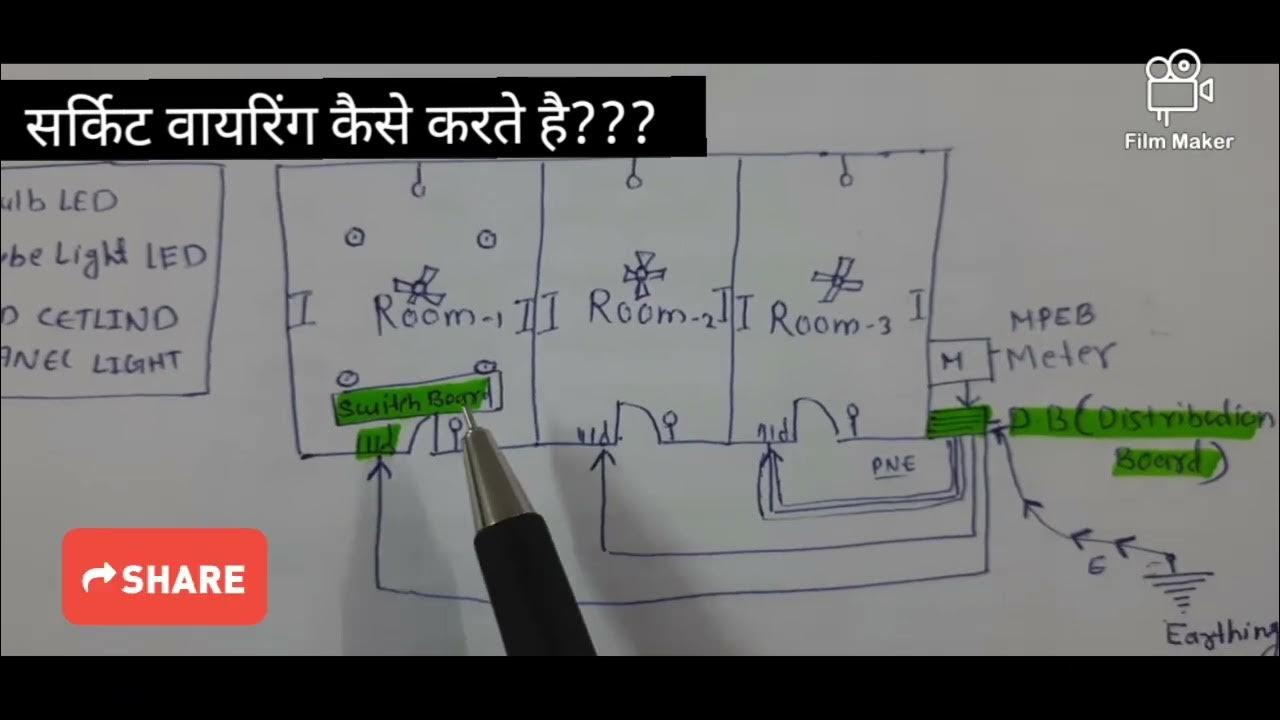 सर्किट वायरिंग कैसे करते है???
Film Maker
ulb LED
be Light LED
D CETLIND
ANEL LIGHT
Room-1
Room-2
Room-3
MPEB
Meter
M
Switch Board
D.B (Distribution
Board)
PNE
E
Earthing
SHARE